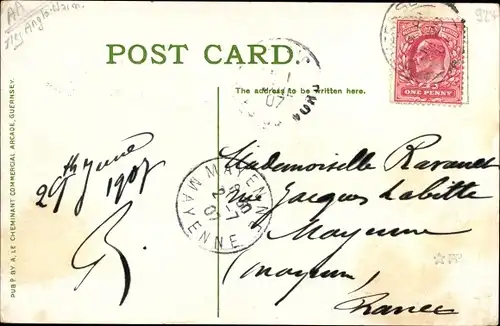 AA
POST CARD.
The address to be written here.
ONE PENNY
29th June
1907
Mademoiselle
rue Jacques Labitte
Mayenne
(Mayenne)
France
MAYENNE
MAYENNE
PUBD BY A. LE CHEMINANT COMMERCIAL ARCADE, GUERNSEY.